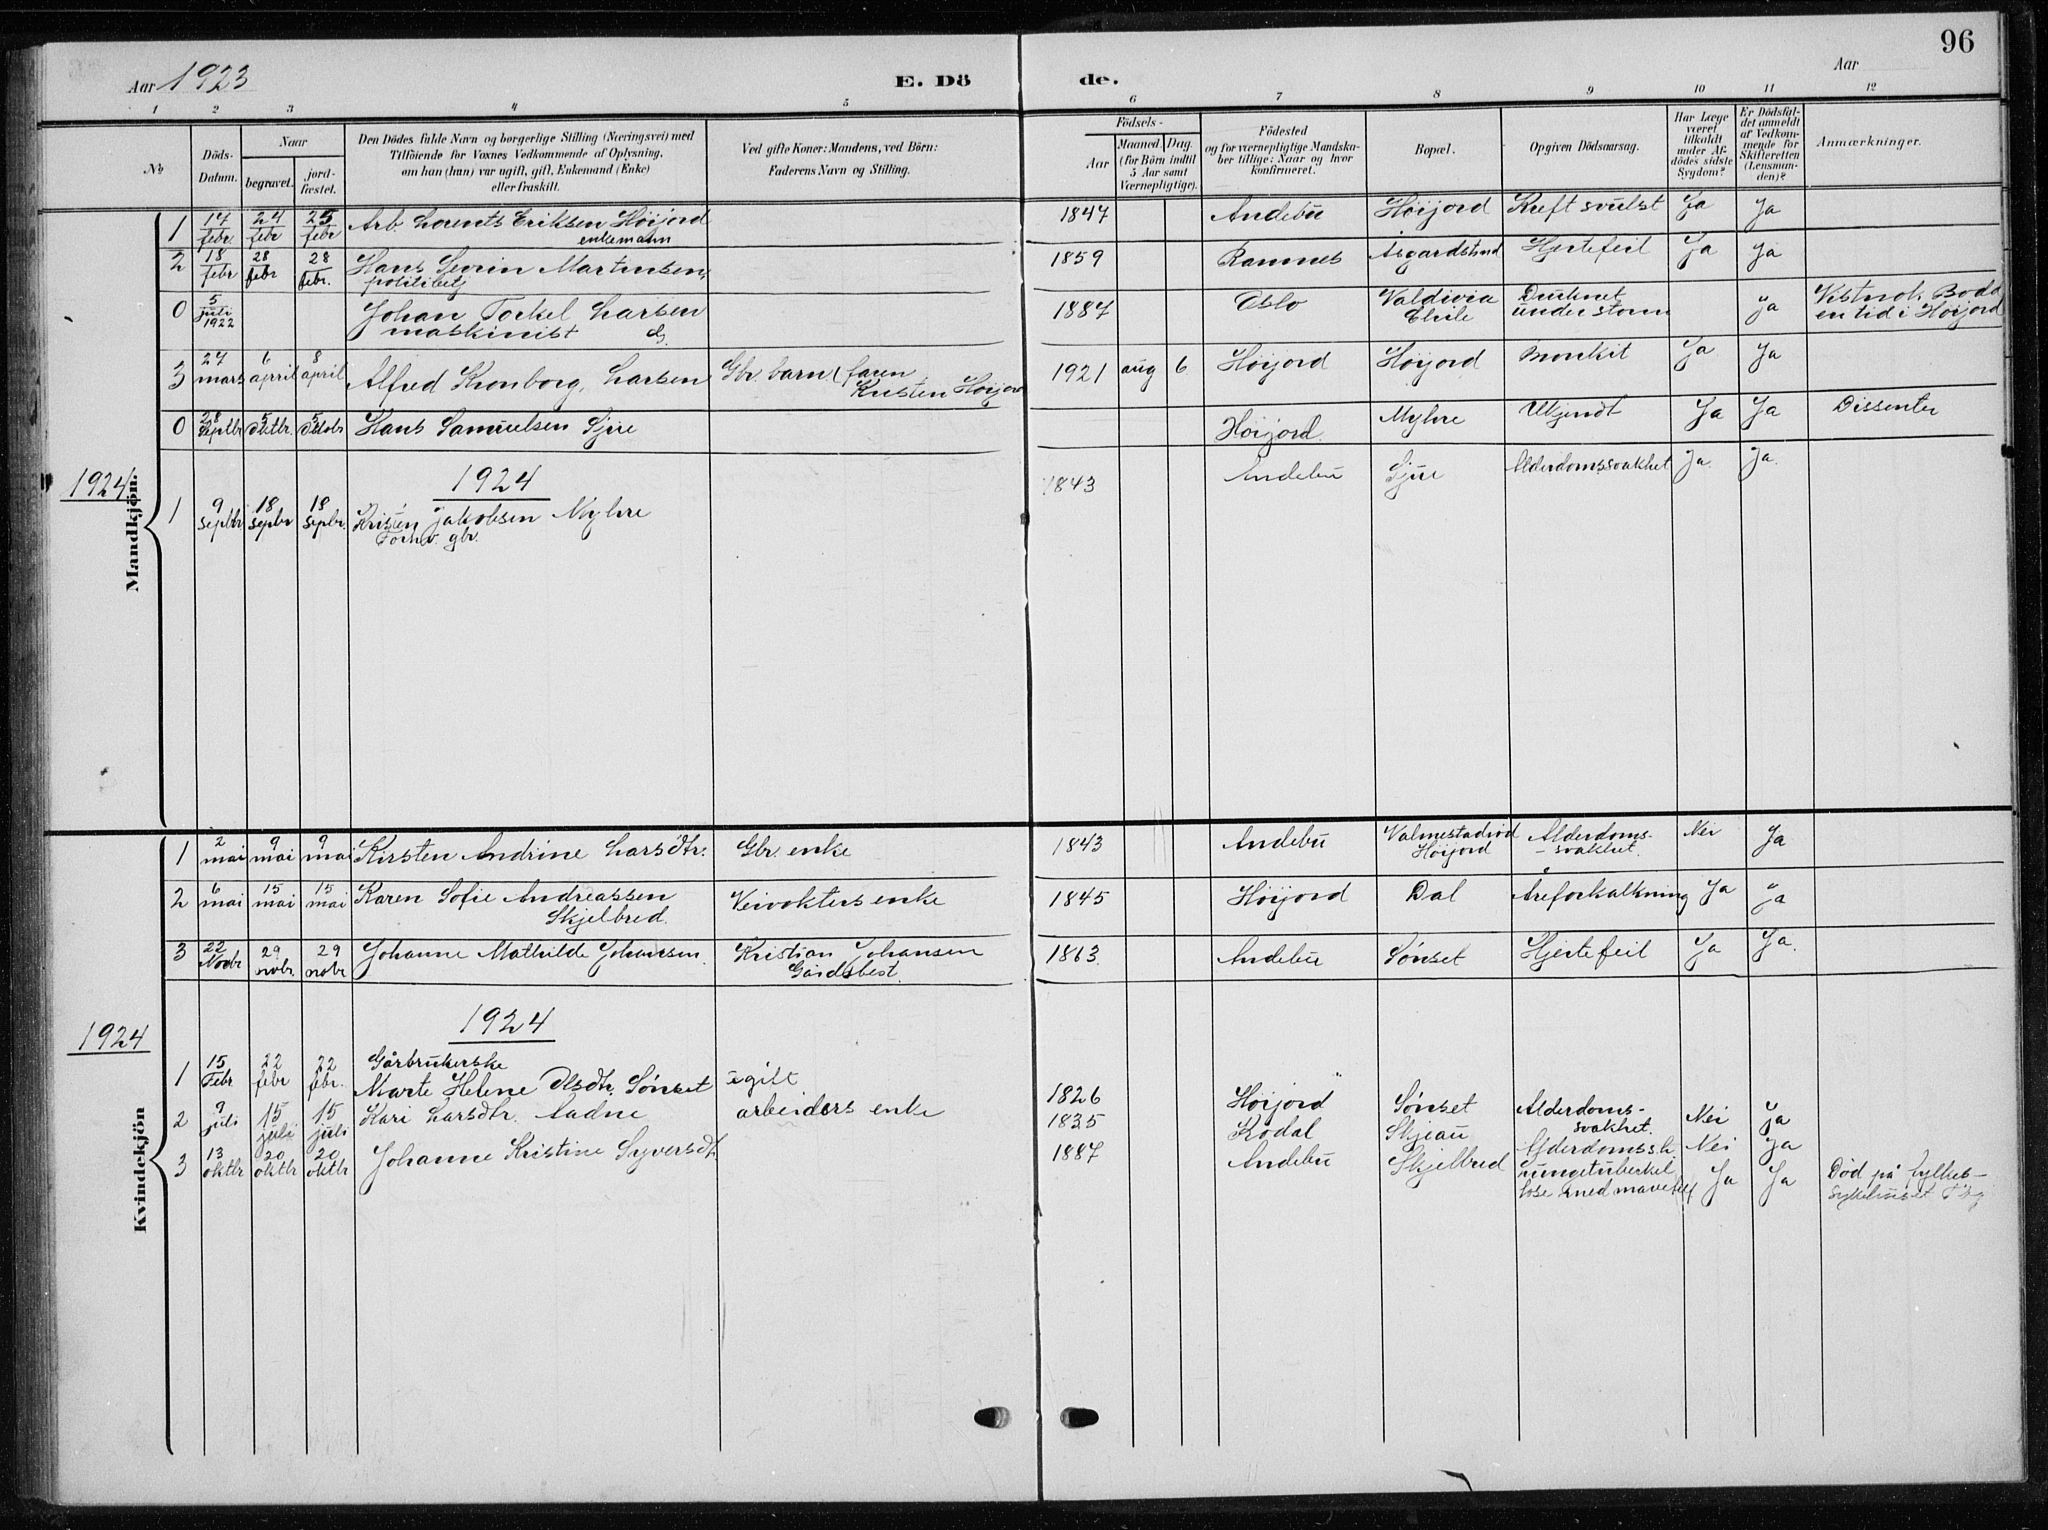 96
Aar 1923 E. Dö de. Aar
1 2 3 4 5 6 7 8 9 10 11 12
No
Döds-
Datum.
Naar
begravet.
jord-
fæstet.
Den Dödes fulde Navn og borgerlige Stilling (Næringsvei) med
Tilföiende for Voxnes Vedkommende af Oplysning,
om han (hun) var ugift, gift, Enkemand (Enke)
eller fraskilt.
Ved gifte Koner: Mandens, ved Börn:
Faderens Navn og Stilling.
Födsels-
Aar
Maaned. Dag.
(for Börn indtil
5 Aar samt
Værnepligtige).
Födested
og for værnepligtige Mandska-
ber tillige: Naar og hvor
konfirmeret.
Bopæl.
Opgiven Dödsaarsag.
Har Læge
været
tilkaldt
under Af-
dödes sidste
Sygdom?
Er Dödsfal-
det anmeldt
af Vedkom-
mende for
Skifteretten
(Lensman-
den)?
Anmærkninger.
Mandkjön.
1 17 febr. 24 febr 25 febr Arb. Lorents Eriksen Höijord enkemann 1847 Andebu Höijord Kreft svulst Ja Ja
2 18 febr 28 febr 28 febr. Hans Sevrin Martinsen, politibetj 1859 Ramnes Åsgardstrand Hjertefeil Ja Ja
0 5 juli 1922 Johan Torkel Larsen maskinist 1887 Oslo Valdivia Chile Druknet under storm ja Vistnok Bodd en tid i Höijord
3 27 mars 6 april 8 april Alfred Kronborg, Larsen Gbr. barn ( faren Kristen Höijord 1921 aug 6 Höijord Höijord Bronkit Ja Ja
0 28 septbr 5 oktbr. 5 oktobr Hans Samuelsen Sjue Höijord. Myhre Ukjendt Ja Ja Dissenter
1924
1924
1 9 septbr 18 septbr 18 septbr. Kristen Jakobsen Myhre Forhv. gbr. 1843 Andebu Sjue Alderdomssvakhet Ja. Ja.
Kvindekjön
1 2 mai 9 mai 9 mai Kirsten Andrine Larsdtr. Gbr. enke 1843 Andebu Valmestadröd Höijord Alderdoms-svakhet. Nei Ja
2 6 mai 15 mai 15 mai Karen Sofie Andreassen Skjelbred. Veivokters enke 1845 Höijord Dal Åreforkalkning Ja ja
3 22 Novbr 29 novbr. 29 novbr Johanne Mathilde Johansen. Kristian Johansen Gårdsbest. 1863 Andebu Sönset Hjertefeil Ja Ja.
1924
1924
1 15 Febr 22 febr 22 febr. Gårbrukerske Marte Helene Olsdtr. Sönset ugift 1826 Höijord Sönset Alderdoms-svakhet. Nei Ja
2 9 juli 15 juli 15 juli Kari Larsdtr. Aadne arbeiders enke 1835 Kodal Skjeau Alderdomssv. Nei Ja
3 13 oktbr 20 oktbr 20 oktbr Johanne Kristine Syversdtr 1887 Andebu Skjelbred Lungetuberkulose med Ja Ja Död på fylkes-sykehuset Tbg